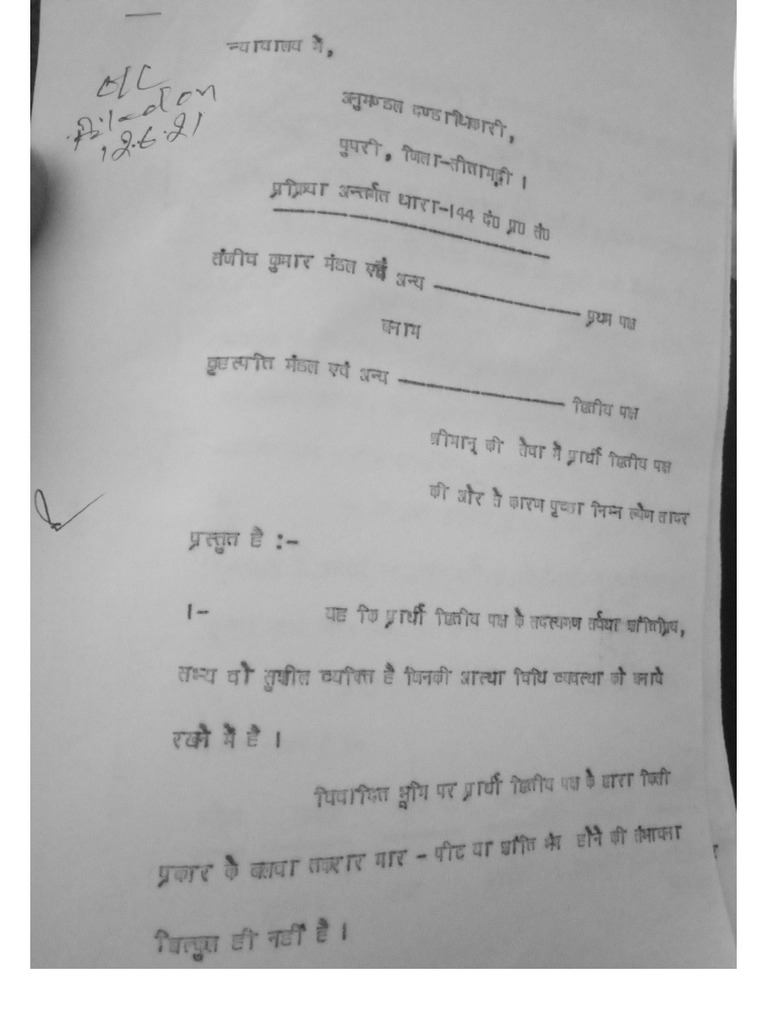 न्यायालय में,
O/C
Filed on
12.6.21
अनुमण्डल दण्डाधिकारी,
पुपरी, जिला-सीतामढ़ी ।
प्रक्रिया अन्तर्गत धारा-144 दं0 प्र0 सं0
संजीव कुमार मंडल एवं अन्य ———————— प्रथम पक्ष
बनाम
वृहस्पति मंडल एवं अन्य ———————— द्वितीय पक्ष
श्रीमान् की सेवा में प्रार्थी द्वितीय पक्ष
की ओर से कारण पृच्छा निम्न रूपेण सादर
प्रस्तुत है :-
1- यह कि प्रार्थी द्वितीय पक्ष के सदस्यगण सर्वथा शांतिप्रिय,
सभ्य वो सुशील व्यक्ति है जिनकी आस्था विधि व्यवस्था को बनाये
रखने में है ।
विवादित भूमि पर प्रार्थी द्वितीय पक्ष के द्वारा किसी
प्रकार के बलवा तकरार मार - पीट या शांति भंग होने की संभावना
बिल्कुल ही नहीं है ।